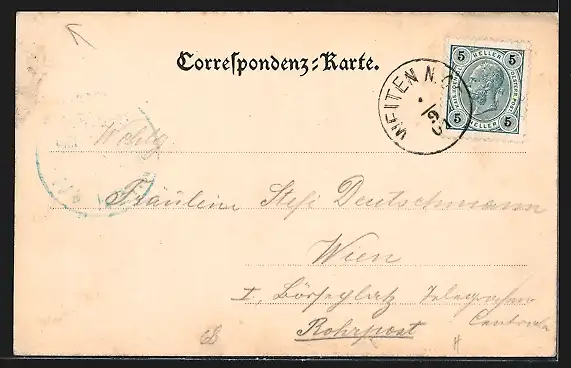 Correspondenz-Karte.
5 HELLER 5
5 HELLER 5
WEITEN N.Ö.
Wohlg
Fräulein Stefi Deutschmann
Wien
I, Börseplatz Telegrafen
Centrale
Rohrpost